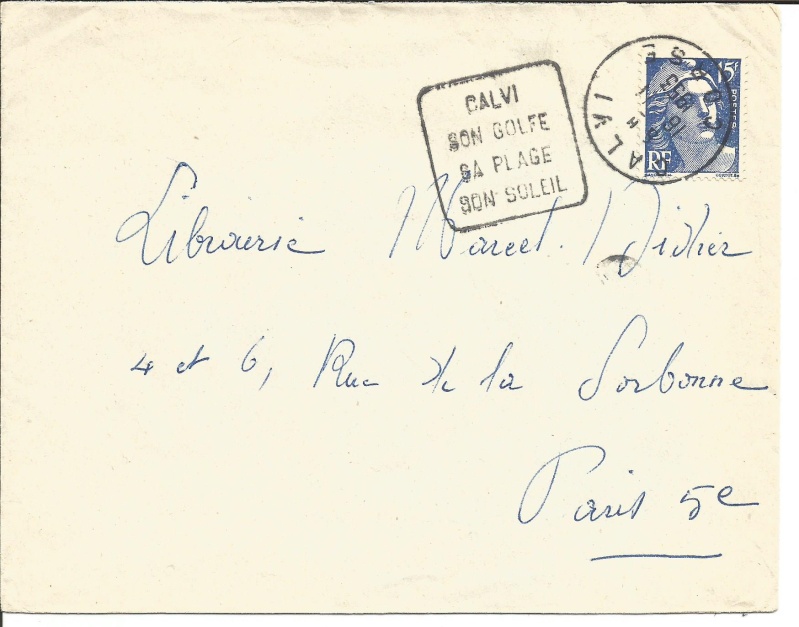 CALVI
SON GOLFE
SA PLAGE
SON SOLEIL
CALVI
CORSE
15F
POSTES
RF
Librairie Marcel Didier
4 et 6, Rue de la Sorbonne
Paris 5e